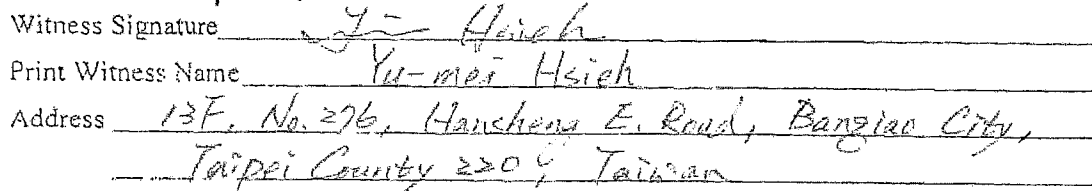 Witness Signature Yu Hsieh
Print Witness Name Yu-mei Hsieh
Address 13F, No. 276, Hansheng E. Road, Banqiao City,
Taipei County 220, Taiwan